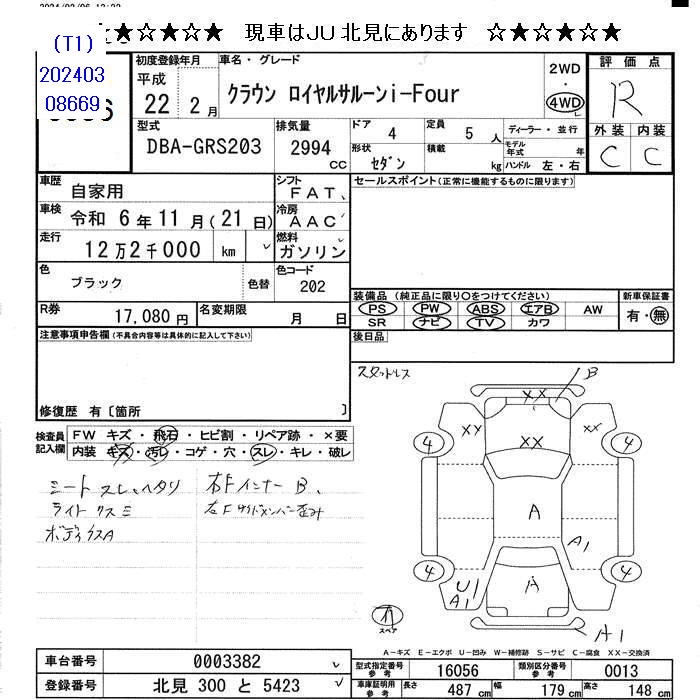 ☆★☆★☆ 現車はJU北見にあります ☆★☆★☆
(T1)
202403
08669
初度登録年月 車名・グレード
平成 22年 2月
クラウン ロイヤルサルーンi-Four
2WD・4WD
評価点
R
外装 内装
C C
型式 DBA-GRS203
排気量 2994 CC
ドア 4 定員 5 人
形状 セダン 積載 kg
ディーラー・並行
モデル年式 年
ハンドル 左・右
車歴 自家用
シフト FAT
セールスポイント(正常に機能するものに限ります)
車検 令和 6年11月(21日)
冷房 AAC
走行 12万2千000 km
燃料 ガソリン
色 ブラック 色替
色コード 202
R券 17,080円
名変期限 月 日
装備品 (純正品に限り○をつけてください)
PS PW ABS エアB AW
SR ナビ TV カワ
新車保証書
有・無
注意事項申告欄(不具合内容等は具体的に記入して下さい)
後日品
修復歴 有〔箇所 〕
スタットレス
検査員記入欄
FW キズ・飛石・ヒビ割・リペア跡・×要
内装 キズ・汚レ・コゲ・穴・スレ・キレ・破レ
シート スレ、ヘタリ
ライト クスミ
ボディ クスA
右Fインナー B、
右Fサイドメンバー歪み
B
XX
XX
XX
XX
4
4
A
A1
4
4
A
U1
A1
A1
スペア
A-キズ E-エクボ U-凹み W-補修跡 S-サビ C-腐食 XX-交換済
車台番号 0003382
型式指定番号 参考 16056
類別区分番号 参考 0013
登録番号 北見 300 と 5423
車庫証明用 参考 長さ 487 cm 幅 179 cm 高さ 148 cm